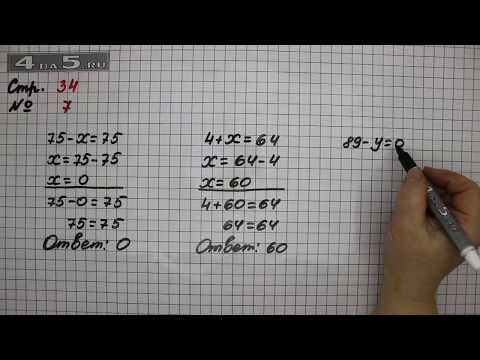 4 DA 5 . RU
Стр. 34
№ 7
75-x=75
x=75-75
x=0
75-0=75
75=75
Ответ: 0
4+x=64
x=64-4
x=60
4+60=64
64=64
Ответ: 60
89-y=0